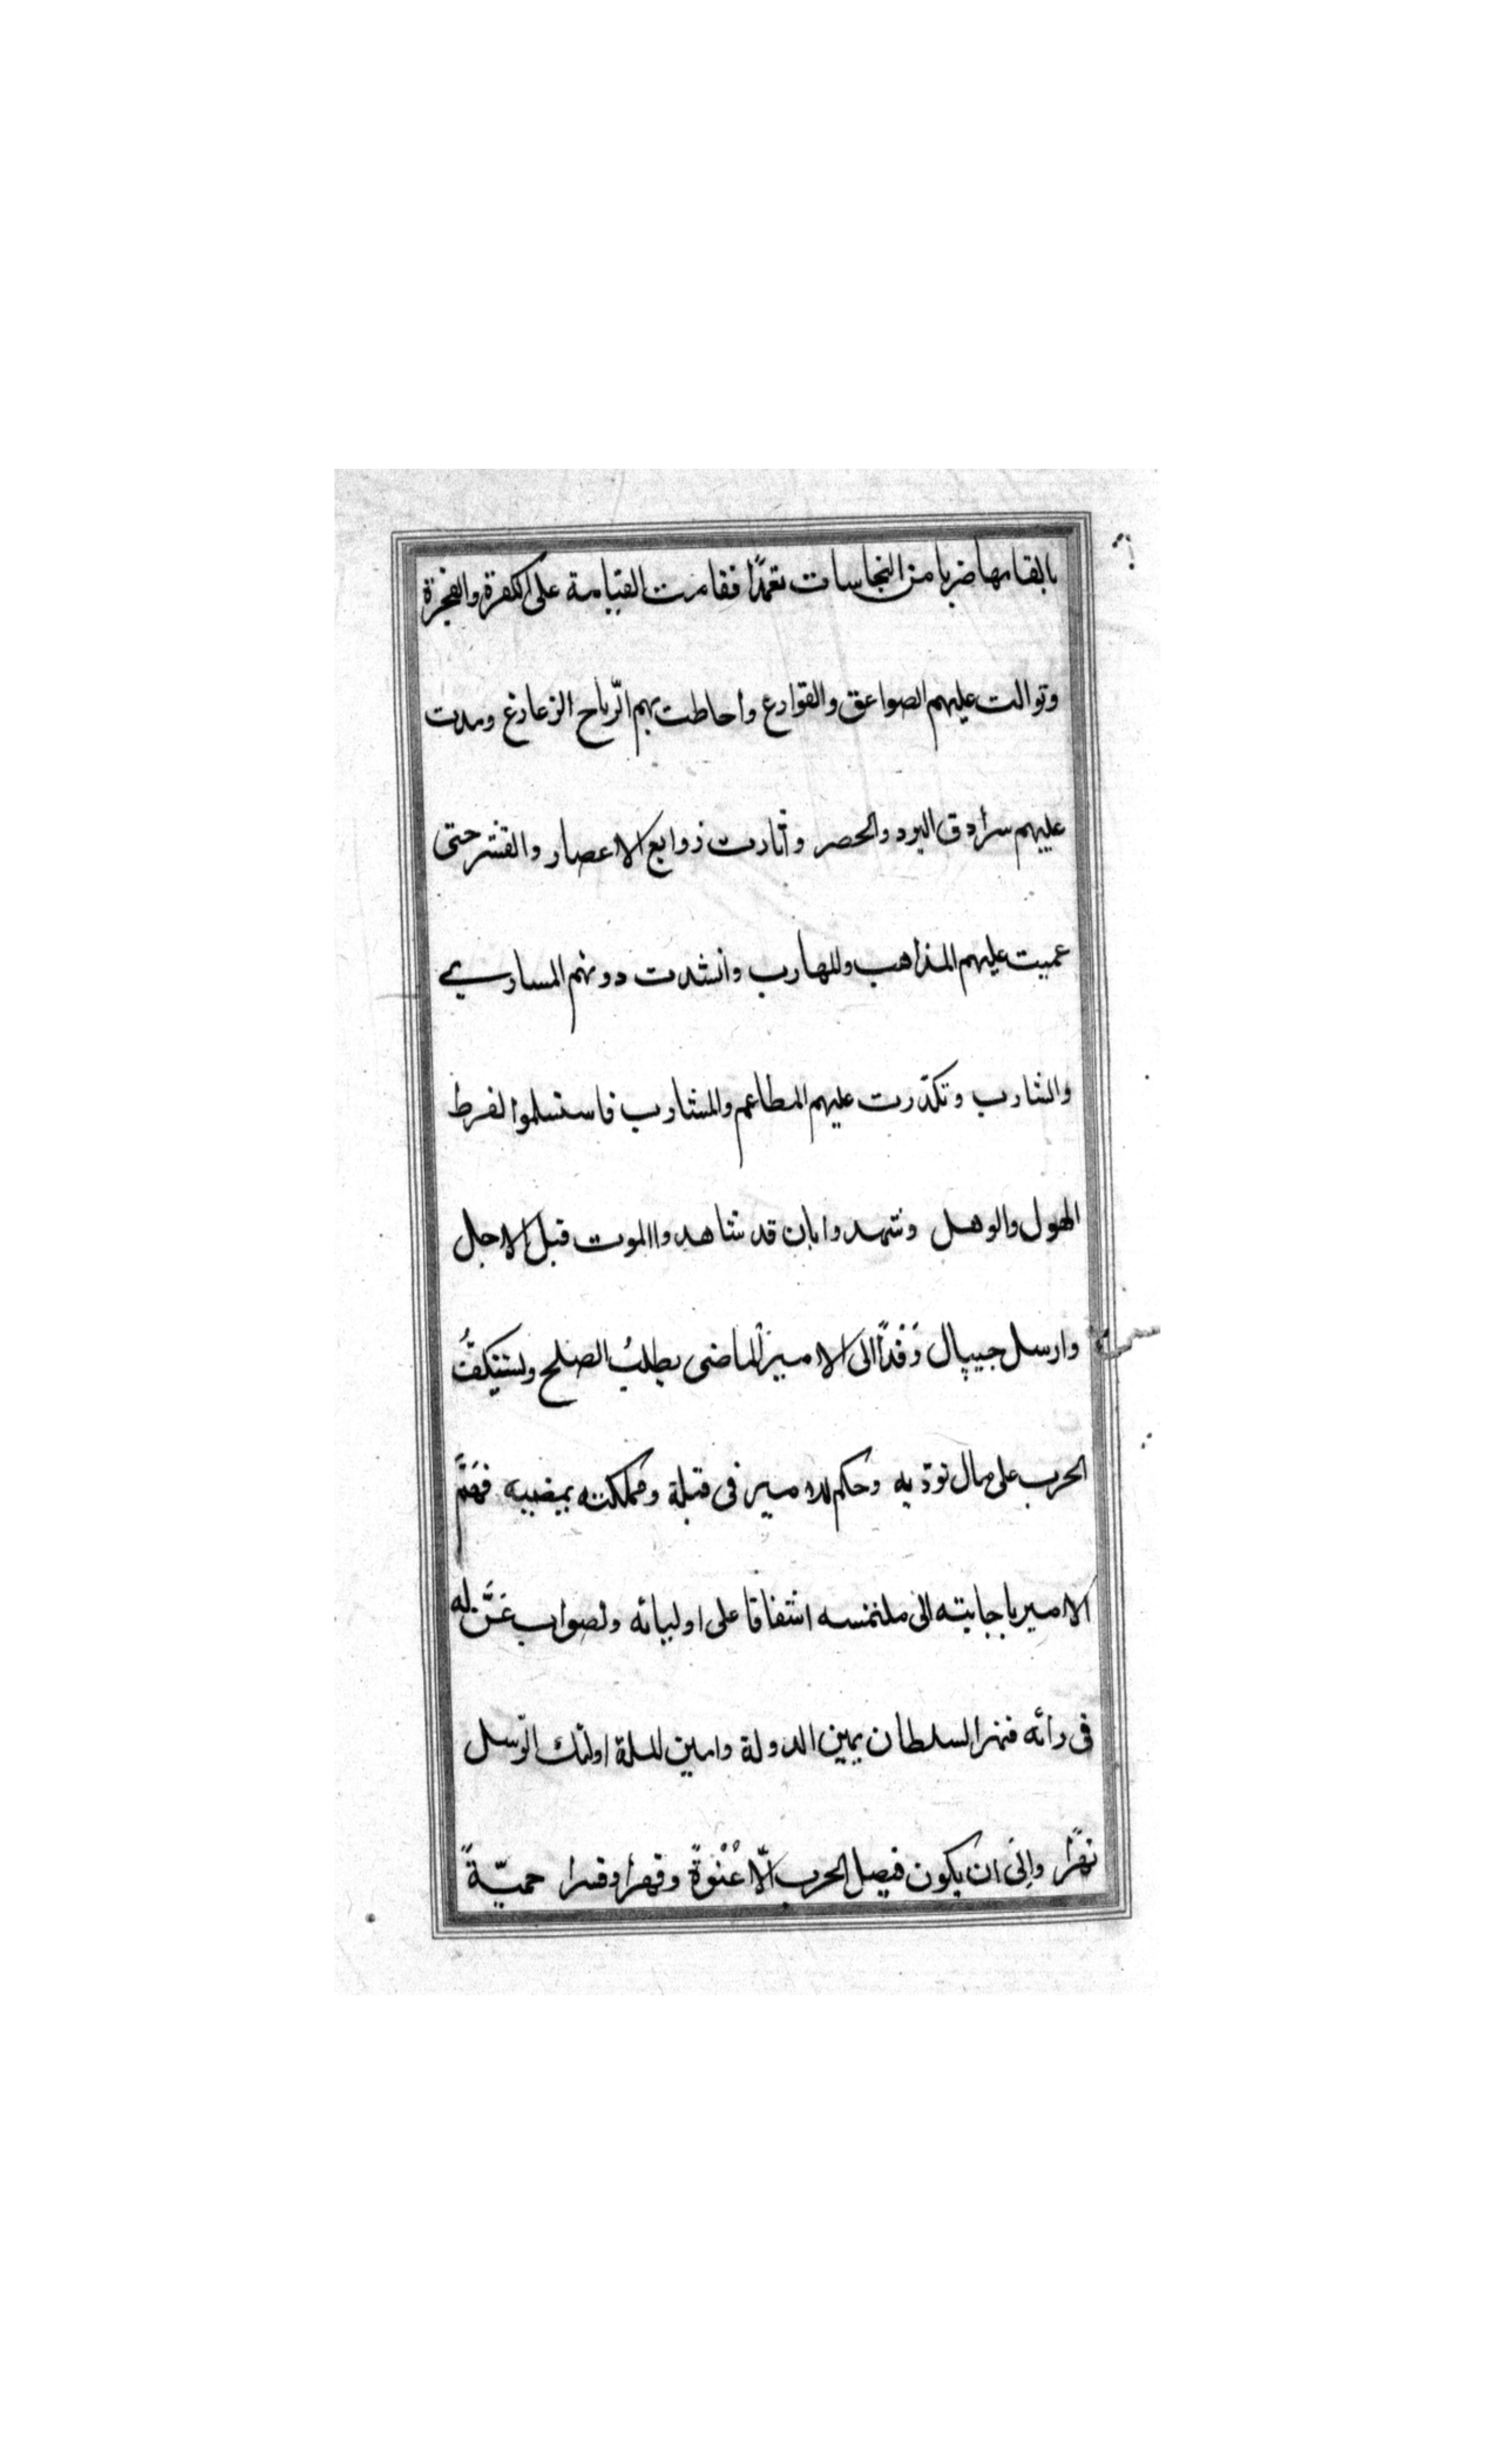 بالقامها ضربا من النجاسات تعمدًا فقامت القيامة على الكفرة والفجرة
وتوالت عليهم الصواعق والقوارع واحاطت بهم الرّياح الزعازع ومدت
عليهم سرادق البرد والحصر وأثارت زوابع الاعصار والقشر حتى
عميت عليهم المذاهب والمهارب وانسدت دونهم المساري
والشارب وتكدّرت عليهم المطاعم والمشارب فاستسلموا لفرط
الهول والوهل وشهدوا بان قد شاهدوا الموت قبل الاجل
وارسل جيپال وَفْداً الى الامير الماضى يطلبُ الصلح ويستكفُّ
الحرب على مال نودّيه وحكم للامير فى قتله ومملكته يمضيه فهَمَّ
الامير باجابته الى ملتمسه اشفاقا على اوليائه ولصواب عَنَّ له
فى رائه فنهر السلطان يمين الدولة وامين الملة اولئك الرّسل
نهرًا وابى ان يكون فيصل الحرب الّا عُنْوةً وقهرا وقسرا حميّةً